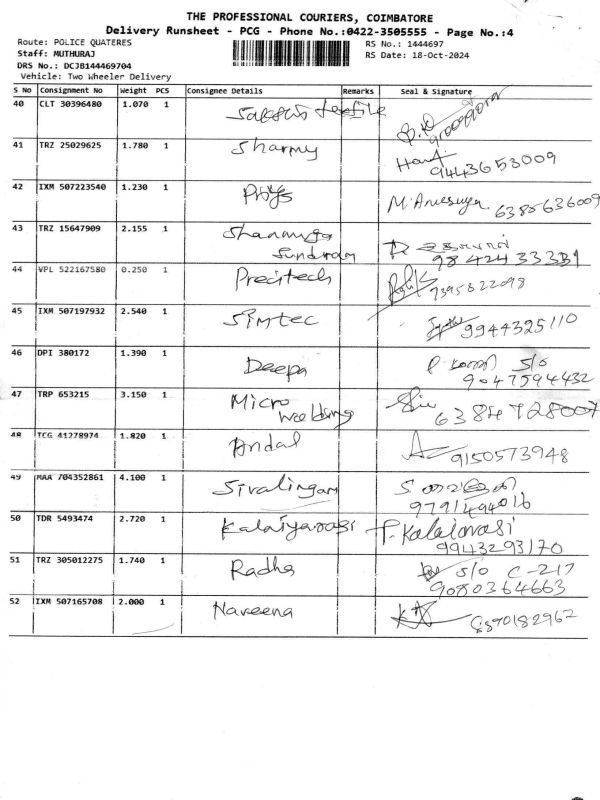 THE PROFESSIONAL COURIERS, COIMBATORE
Delivery Runsheet - PCG - Phone No.:0422-3505555 - Page No.:4
Route: POLICE QUATERES
RS No.: 1444697
Staff: MUTHURAJ
RS Date: 18-Oct-2024
DRS No.: DCJB144469704
Vehicle: Two Wheeler Delivery
S No Consignment No Weight PCS Consignee Details Remarks Seal & Signature
40 CLT 30396480 1.070 1 textile
41 TRZ 25029625 1.780 1 Sharmy
9443653009
42 IXM 507223540 1.230 1 M. Anusuya 6385636009
43 TRZ 15647909 2.155 1 Shanmuga
Sundram
44 VPL 522167580 0.250 1 Precitech 9395622098
45 IXM 507197932 2.540 1 Simtec 9944325110
46 DPI 380172 1.390 1 Deepa S/o
9047594432
47 TRP 653215 3.150 1 Micro
Welding 6384728007
48 TCG 41278974 1.820 1 Andal 9150573948
49 MAA 704352861 4.100 1 Sivalingam
9791494016
50 TDR 5493474 2.720 1 Kalaiyarasi P. Kalaiarasi
9943293170
51 TRZ 305012275 1.740 1 Radha S/o C-217
9080364663
52 IXM 507165708 2.000 1 Naveena